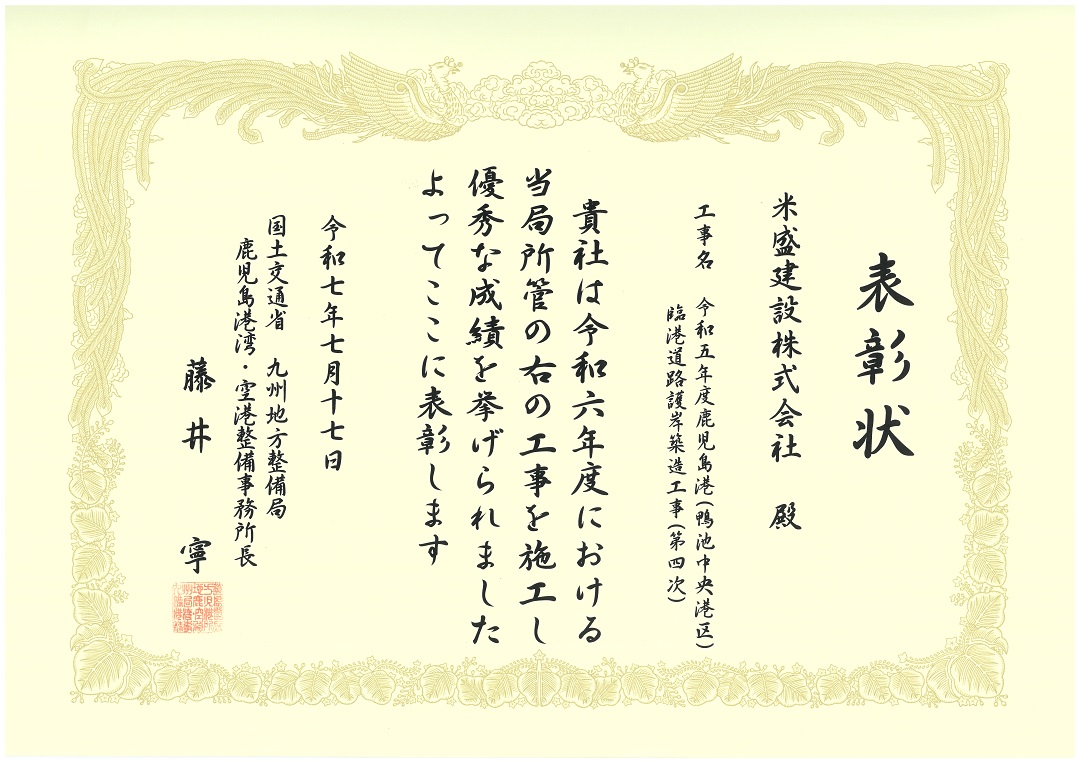 表彰状
米盛建設株式会社 殿
工事名 令和五年度鹿児島港(鴨池中央港区)
臨港道路護岸築造工事(第四次)
貴社は令和六年度における
当局所管の右の工事を施工し
優秀な成績を挙げられました
よってここに表彰します
令和七年七月十七日
国土交通省 九州地方整備局
鹿児島港湾・空港整備事務所長
藤井 寧